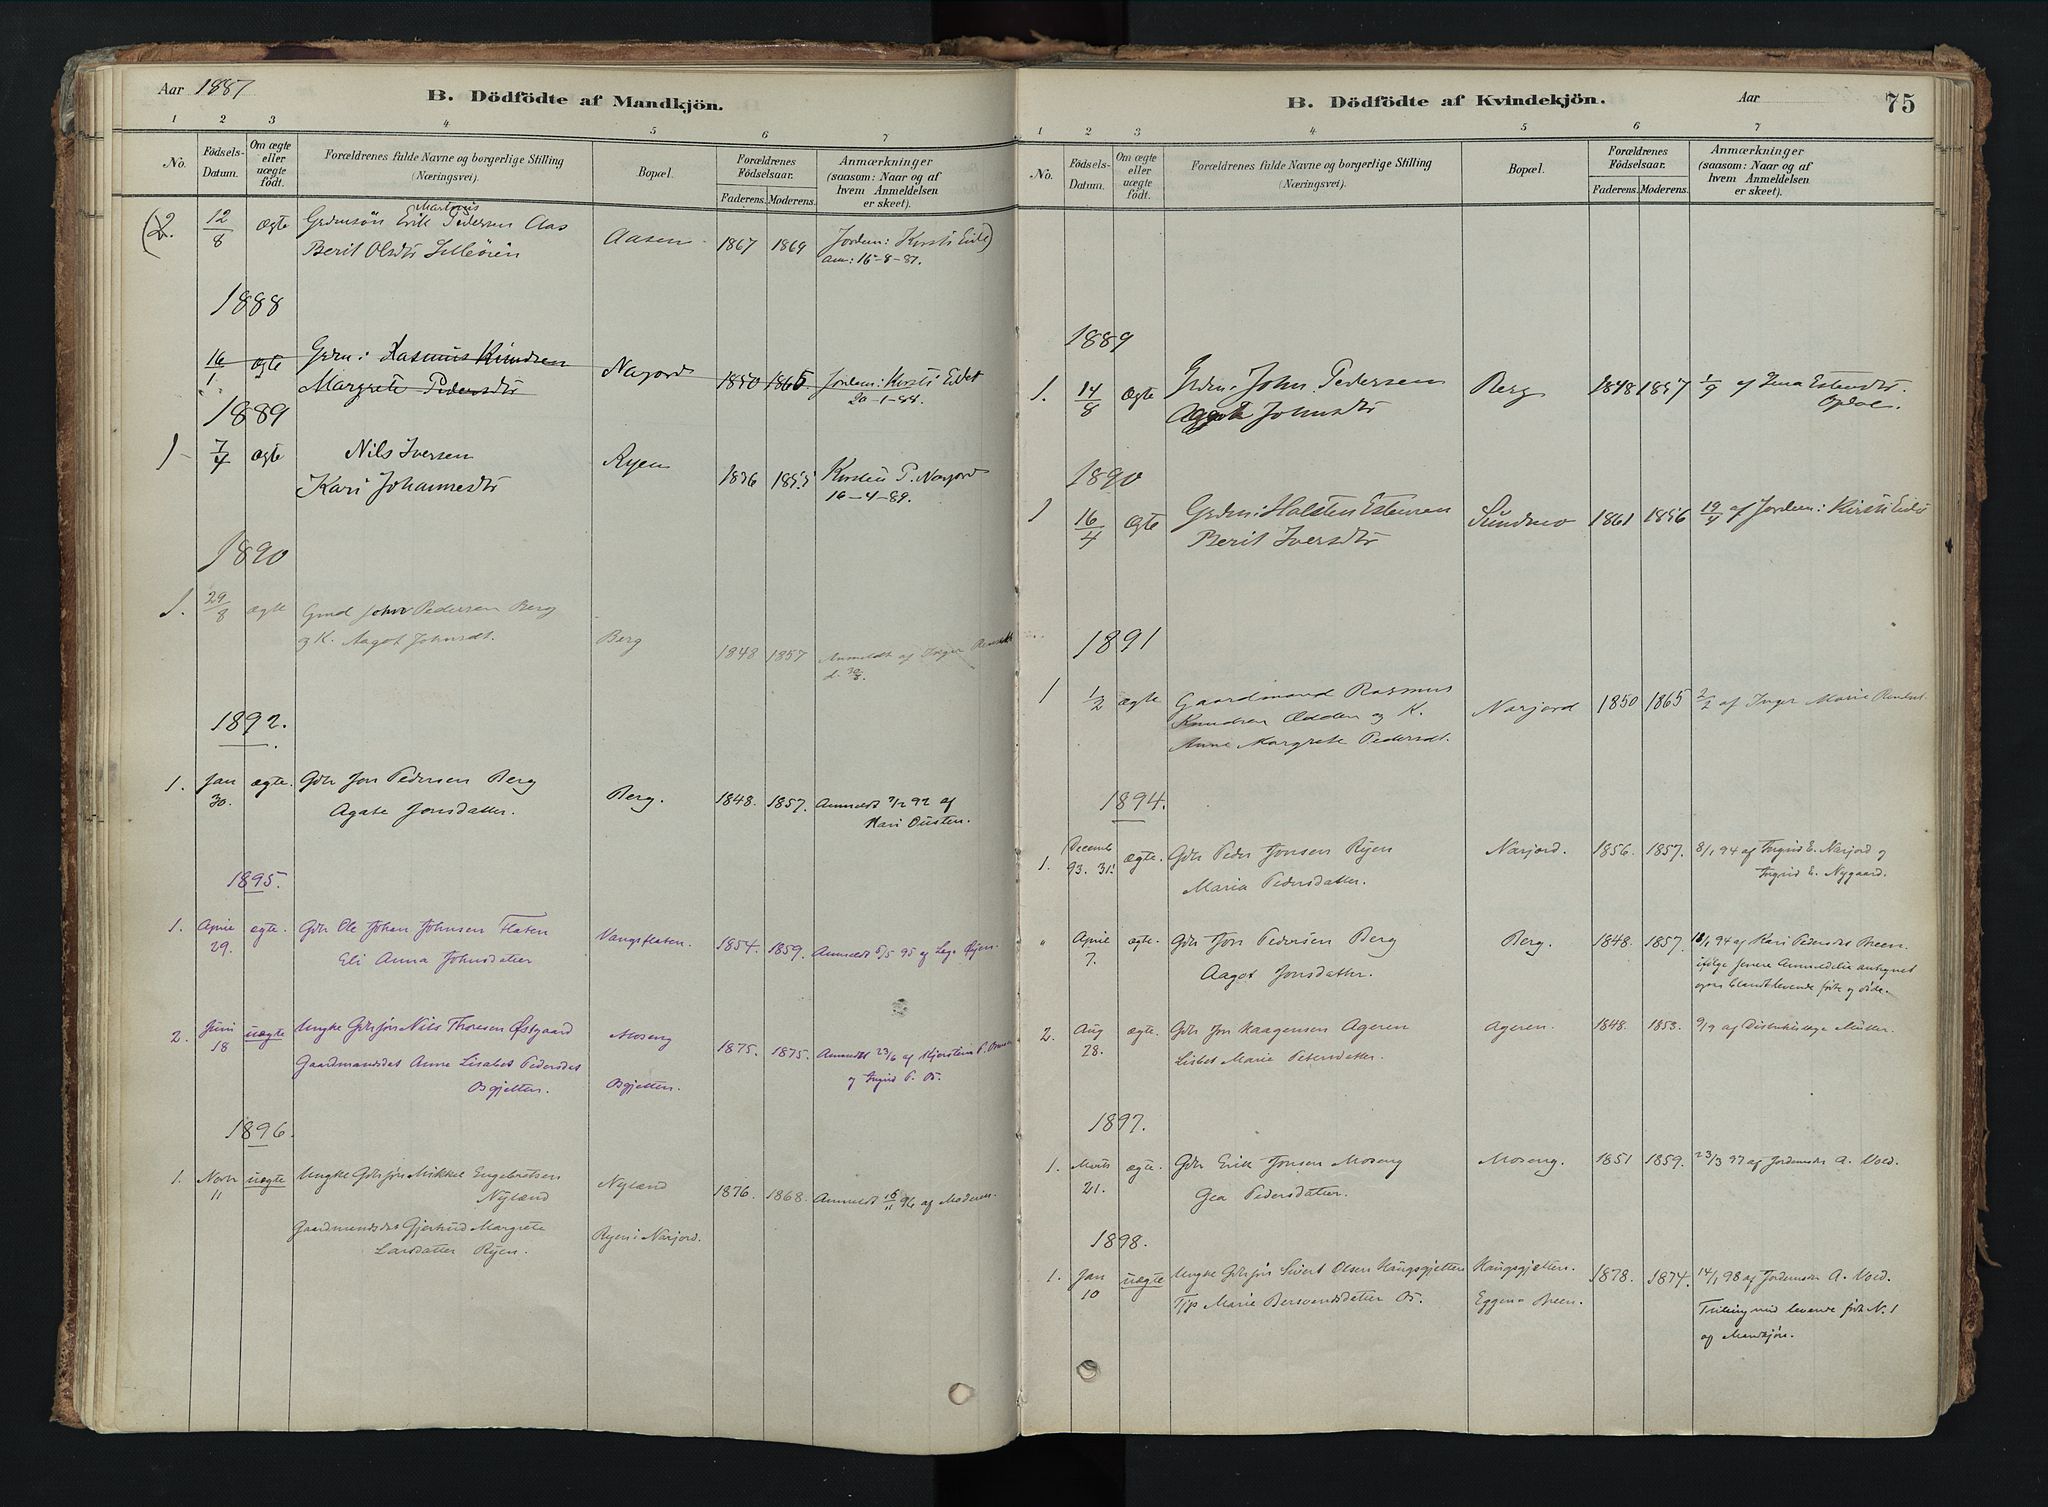 Aar 1887
B. Dödfödte af Mandkjön.
1 2 3 4 5 6 7
No. Födsels-Datum. Om ægte eller uægte födt. Forældrenes fulde Navne og borgerlige Stilling (Næringsvei). Bopæl. Forældrenes Födselsaar. Faderens. Moderens. Anmærkninger (saasom: Naar og af hvem Anmeldelsen er skeet).
Martinus
(2. 12/8 ægte Grdmsön Erik Pedersen Aas Aasen 1867 1869 Jordem: Kirsti Eidet)
Berit Olsdtr Lilleöien anm: 16-8-87.
1888
16/1 ægte Grdm: Rasmus Knudsen Narjord 1850 1865 Jordem: Kirsti Eidet
Margrete Pedersdtr 20-1-88.
1889
1 7/4 ægte Nils Iversen Ryen 1836 1855 Kirsten P. Narjord
Kari Johannesdtr 16-4-89.
1890
1. 29/8 ægte Gmd John Pedersen Berg
og K. Aagot Johnsdt. Berg 1848 1857 Anmeldt af Inger
d. 30/8.
1892.
1. Jan 30. ægte. Gdbr Jon Pedersen Berg Berg. 1848. 1857. Anmeldt 7/2 92 af
Agate Jonsdatter. Kari Ousten.
1895.
1. April 29. ægte. Gdbr Ole Johan Johnsen Flaten Vangsflaten. 1854. 1859. Anmeldt 5/5 95 af Læge Øyen.
Eli Anna Johnsdatter
2. Juni 18 uægte Ungke Gdbrsön Nils Thoresen Østgaard Moseng 1875. 1875. Anmeldt 23/6 af Kjersten P.
Gaardmandsdat Anne Lisabet Pedersdat
Osgjelten. Osgjelten. og Ingrid P. Os.
1896.
1. Novbr 11 uægte Ungke Gdbrsön Mikkel Engebretsen Nyland 1876. 1868. Anmeldt 16/11 96 af Moderen.
Nyland
Gaardmandsdat Gjertrud Margrete Ryen i Narjord.
Larsdatter Ryen.
B. Dödfödte af Kvindekjön.
Aar 75
1 2 3 4 5 6 7
No. Födsels-Datum. Om ægte eller uægte födt. Forældrenes fulde Navne og borgerlige Stilling (Næringsvei). Bopæl. Forældrenes Födselsaar. Faderens. Moderens. Anmærkninger (saasom: Naar og af hvem Anmeldelsen er skeet).
1889
1. 14/8 ægte Grdm: John Pedersen Berg 1848 1857 1/9 af Estensdtr
Aagot Johnsdtr Opdal.
1890
1 16/4 ægte Grdm: Halsten Estensen Sundmo 1861 1856 19/4 af Jordem: Kirsti Eidet
Berit Iversdtr
1891
1 1/2 ægte Gaardmand Rasmus
Knudsen Odden og K. Narjord 1850 1865 2/2 af Inger Marie
Anne Margrete Pedersdt.
1894.
1. Decemb 93. 31. ægte. Gdbr Peder Jonsen Ryen Narjord. 1856. 1857. 8/1 94 af Ingrid E. Narjord og
Maria Pedersdatter. Ingrid E. Nygaard.
" April 7. ægte. Gdbr Jon Pedersen Berg Berg. 1848. 1857. af Kari Pedersdat Breen.
Aagot Jonsdatter. ifölge senere Anmeldelse antegnet
ogsaa blandt levende födte og döde.
2. Aug 28. ægte. Gdbr Jon Haagensen Ageren Ageren. 1848. 1853. 9/9 af Distriktslæge Müller.
Lisbet Marie Petersdatter.
1897.
1. Marts 21. ægte. Gdbr Erik Jonsen Moseng Moseng. 1851 1859. 23/3 97 af Jordemoder A. Vold.
Gea Pedersdatter.
1898.
1. Jan 10 uægte Ungke Gdbrsön Sivert Olsen Haugsgjelten Haugsgjelten. 1878. 1874. 14/1 98 af Jordemoder A. Vold.
Tjp Marie Bersvendsdatter Os. Eggena Breen. Tvilling med levende födt N. 1
af Mandkjön.